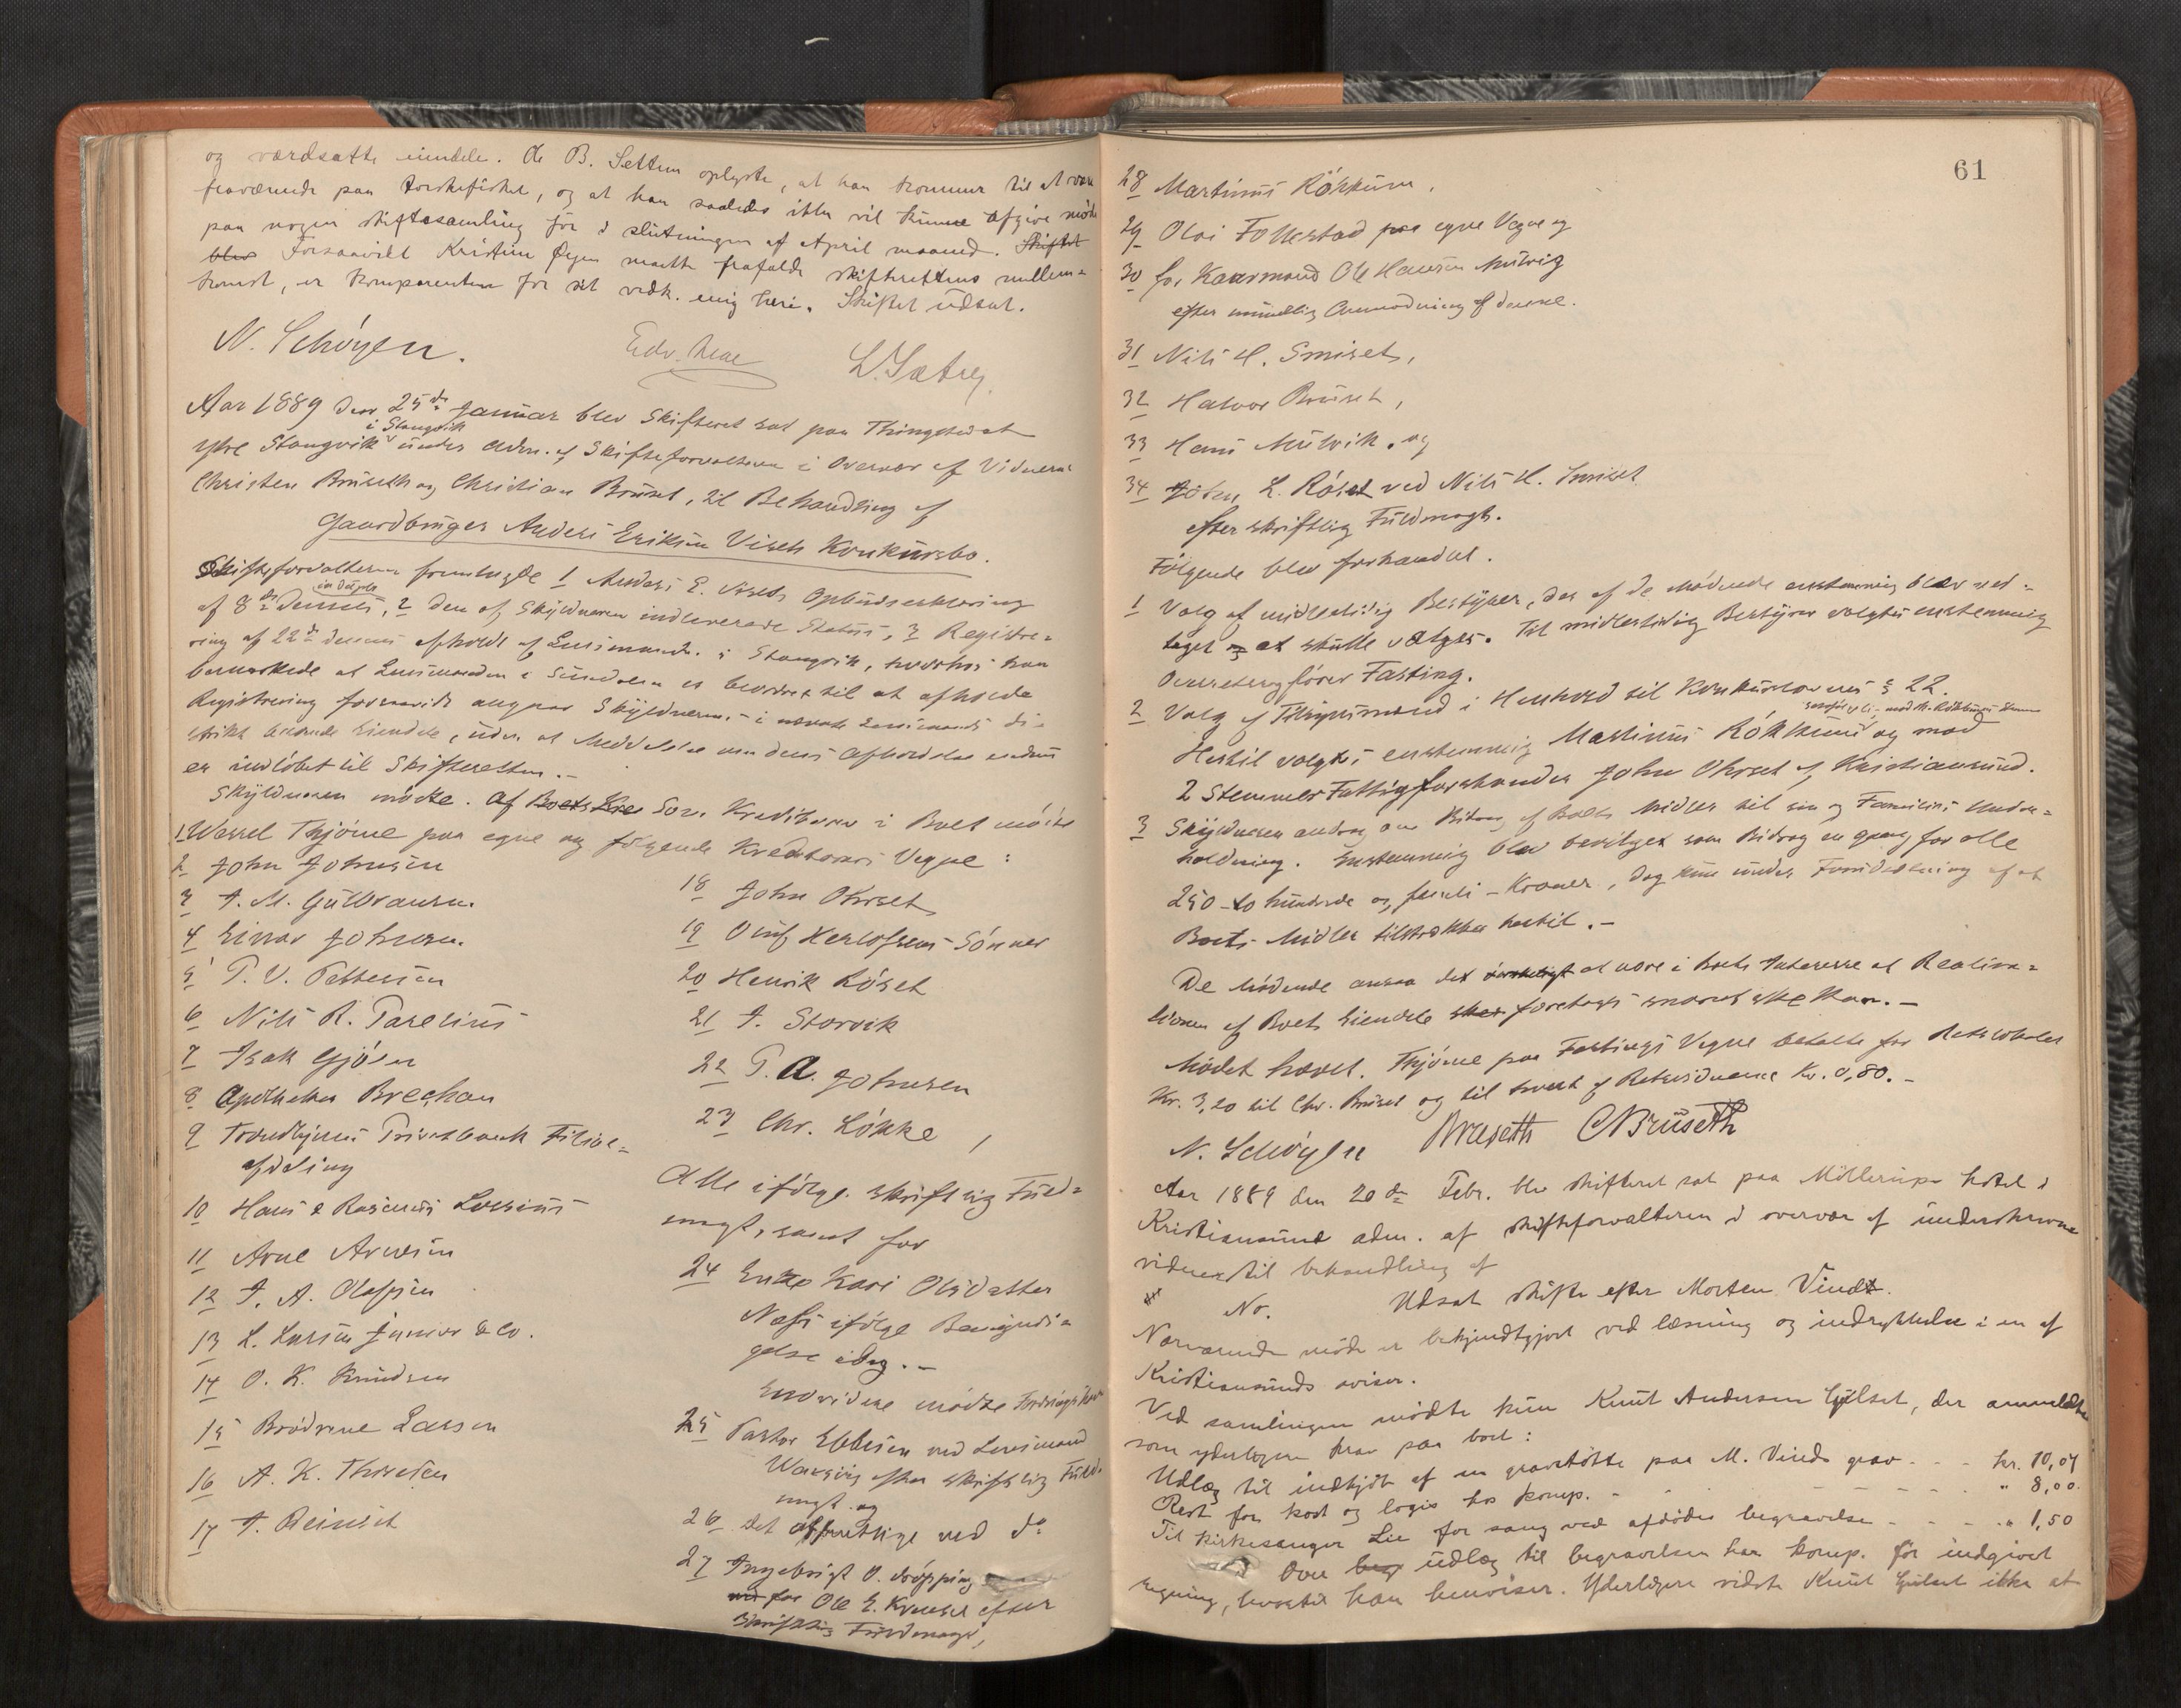 og værdsatte eiendele. Ole B. Settem oplyste, at han kommer til at være
fraværende paa torskefisket, og at han saaledes ikke vil kunne afgive møde
paa nogen skiftesamling før i slutningen af April maaned. Skiftet
blev Forsaavidt Kristine Øyen maatte frafalde skifterettens mellem=
komst, er komparenten for sit vedk. enig heri. Skiftet udsat.
N. Schöyen. Edv. L. Sætrey
Aar 1889 den 25de Januar blev Skifteret sat paa Thingstedet
i Stangvik
Ytre Stangvik under Adm. af Skifteforvalteren i Overvær af Vidnerne
Christen Brüseth og Christian Brüset, til Behandling af
Gaardbruger Anders Eriksen Visets Konkursbo.
Skifteforvalteren fremlagde 1 Anders E. Visets Opbudserklæring
af 8de dennes, 2 den af Skyldneren indleverede Status, 3 Registre=
ring af 22de dennes afholdt af Lensmanden i Stangvik, hvorhos han
bemærkede at Lensmanden i Sundalen er beordret til at afholde
Registrering forsaavidt angaar Skyldnerens i nævnte Lensmands di=
strikt værende Eiendele, uden at Meddelelse om dens Afholdelse endnu
er indløbet til Skifteretten.-
Skyldneren mødte. Af Boets Kre Som Kreditorer i Boet mødte
1. Wessel Thjóme paa egne og følgende Kreditorers Vegne:
2 John Johnsen
3 A. M. Gulbransen.
4 Einar Johnsen.
5 P. V. Pettersen
6 Nils R. Parelius
7 Isak Gjøen
8 Apotheker Brechan
9 Trondhjems Privatbank Filial=
afdeling
10 Hans & Rasmus Lossius
11 Arne Arnesen
12 A. A. Olafsen
13 L. Larsen Junior & Co.
14 O. K. Knudsen
15 Brødrene Larsen
16 A. K. Thoresen
17 A. Reinsch
18 John Ohrset
19 Oluf Herlofsens Sønner
20 Henrik Röset
21 A. Storvik
22 P. A. Johnsen
23 Chr. Lökke,
Alle ifølge skriftlig Fuld=
magt, samt for
24 Enke Kari Olsdatter
Næss ifølge Bemyndi=
gelse idag.-
Endvidere mødte
25 Pastor Ebbesen ved Lensmand
efter skriftlig Fuld=
magt og
26 det offentlige ved do
27 Ingebrigt O. Dröpping
for Ole E. Kvenset efter
skriftlig Fuldmagt,
61
28 Martinus Rökkum,
29 Olai Follestad paa egne Vegne og
30 for Kaarmand Ole Hansen Mulvig
efter mundtlig Anmodning af denne.
31 Nils H. Smiset,
32 Halvor Brüset,
33 Hans Mulvik. og
34 John L. Röset ved Nils H. Smiset
efter skriftlig Fuldmagt.
Følgende blev forhandlet.
1 Valg af midlertidig Bestyrer, der af de Mødende enstemmig blev ved=
taget at skulle vælges. Til midlertidig Bestyrer valgtes enstemmig
Overretssagfører Fasting.
2 Valg af Tilsynsmænd i Henhold til Konkurslovens § 22.
Hertil valgtes enstemmig Martinus Rökkum og mod
2 Stemmer Fattigforstander John Ohrset af Kristiansund.
3 Skyldneren androg om Bidrag af Boets Midler til sin og Families Under=
holdning. Enstemmig blev bevilget som Bidrag en gang for alle
250 - to hundrede og femti - Kroner, dog kun under Forudsætning af at
Boets Midler tilstrækker hertil.-
De Mødende ansaa det at være i Boets Interesse at Realisa=
tionen af Boets Eiendele sker foretages snarest ske kan.-
Mødet hævet. Thjóme paa Fastings Vegne betalte for Retslokalet
Kr. 3,20 til Chr. Brüset og til hvert af Retsvidnerne Kr. 0,80.-
N. Schöyen Brüseth CBrüseth
Aar 1889 den 20de Febr. blev skifteret sat paa Möllerups hotel i
Kristiansund adm. af skifteforvalteren i overvær af underskrevne
vidner til behandling af
No. Udsat skifte efter Morten Vindt.
Nærværende møde er bekjendtgjort ved læsning og indrykkelse i en af
Kristiansunds aviser.
Ved samlingen mødte kun Knut Andersen Gylset, der anmeldte
som yderligere krav paa boet:
Udlæg til indkjøb af en gravstøtte paa M. Vinds grav - - - kr. 10,04
Rest for kost og logis hos komp. - - - - " 8,00.
Til kirkesanger Lie for sang ved afdødes begravelse - - - - " 1,50
Over beg udlæg til begravelsen har komp. før indgivet
regning, hvortil han henviser. Yderligere vidste Knut Gylset ikke at